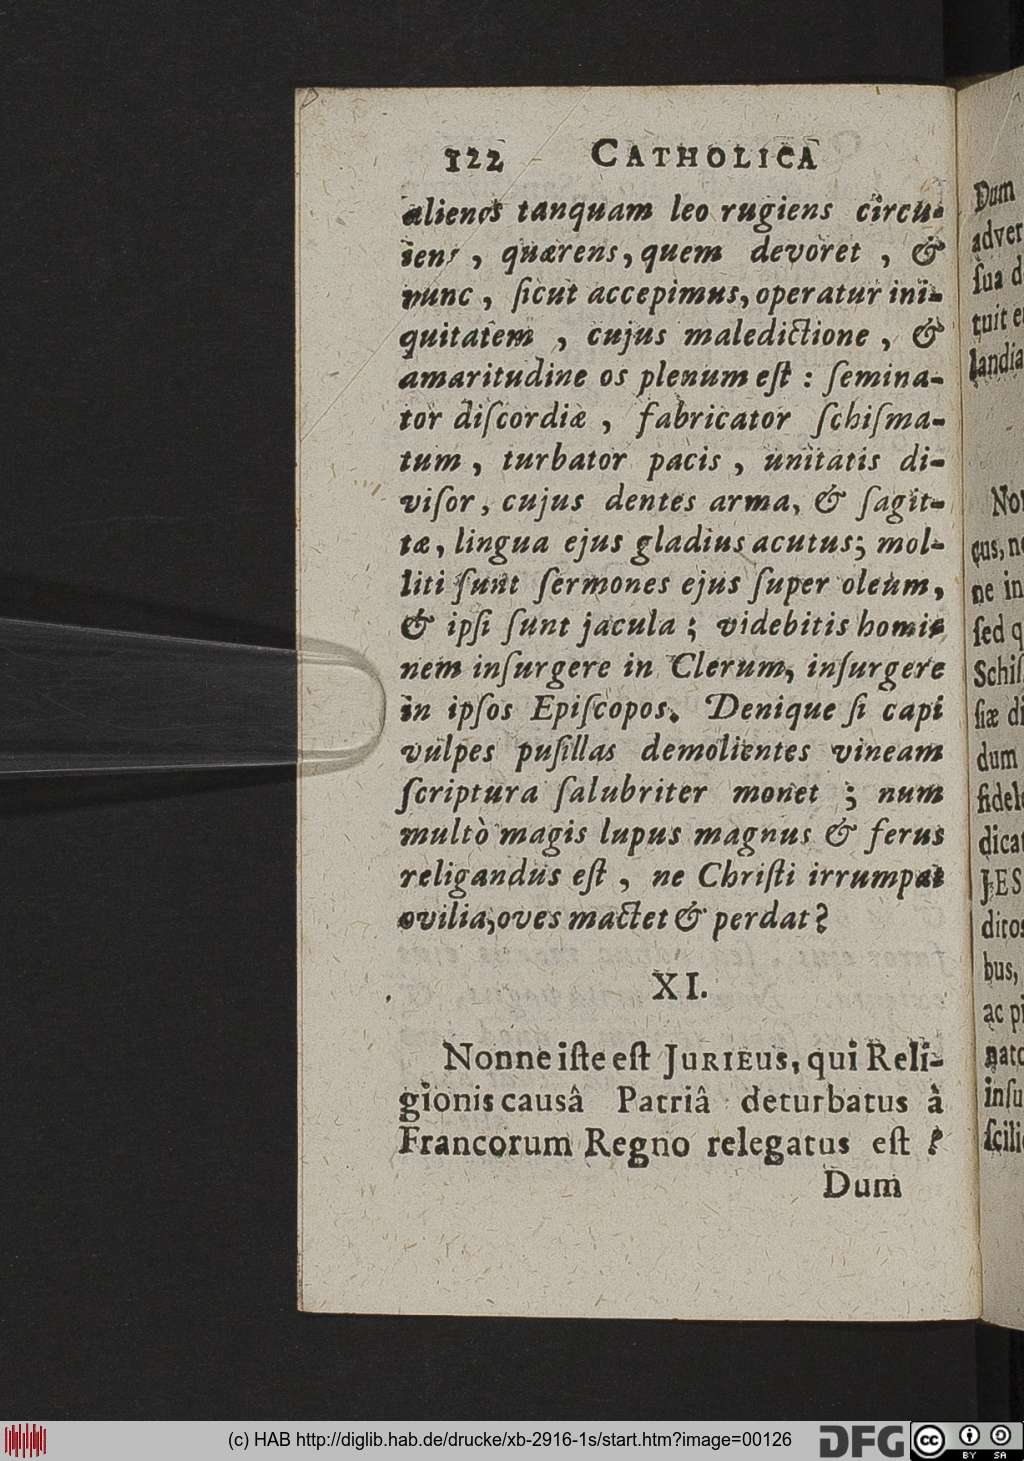 122 CATHOLICA
alienos tanquam leo rugiens circu-
iens, quærens, quem devoret, &
nunc, ſicut accepimus, operatur ini-
quitatem, cujus maledictione, &
amaritudine os plenum eſt: ſemina-
tor diſcordiæ, fabricator ſchiſma-
tum, turbator pacis, unitatis di-
viſor, cujus dentes arma, & ſagit-
tæ, lingua ejus gladius acutus; mol-
liti ſunt ſermones ejus ſuper oleum,
& ipſi ſunt jacula; videbitis homi-
nem inſurgere in Clerum, inſurgere
in ipſos Epiſcopos. Denique ſi capi
vulpes puſillas demolientes vineam
ſcriptura ſalubriter monet; num
multò magis lupus magnus & ferus
religandus eſt, ne Chriſti irrumpat
ovilia, oves mactet & perdat?
XI.
Nonne iſte eſt JURIEUS, qui Reli-
gionis causâ Patriâ deturbatus à
Francorum Regno relegatus eſt?
Dum
Dum
adver
ſua d
tuit e
landia
Non
cus, ne
ne in
ſed q
Schiſ
ſiæ di
dum
fidele
dicat
JES
ditos
bus,
ac pi
nato
inſu
ſcili
(c) HAB http://diglib.hab.de/drucke/xb-2916-1s/start.htm?image=00126
DFG
cc BY SA